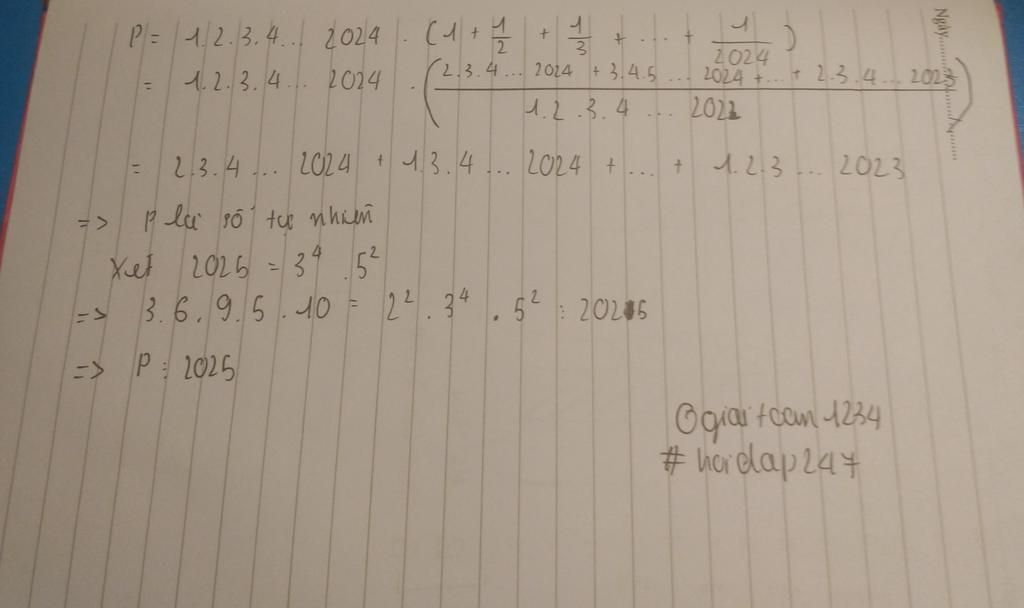 P = 1.2.3.4... 2024 . (1 + 1/2 + 1/3 + ... + 1/2024)
= 1.2.3.4... 2024 . ((2.3.4... 2024 + 3.4.5 ... 2024 + ... + 2.3.4... 2023)/(1.2.3.4 ... 2022))
= 2.3.4... 2024 + 1.3.4... 2024 + ... + 1.2.3... 2023
=> P là số tự nhiên
Xét 2025 = 3^4 . 5^2
=> 3.6.9.5.10 = 2^2 . 3^4 . 5^2 ⋮ 2025
=> P ⋮ 2025
@giaitoan1234
# hoidap247
Ngày